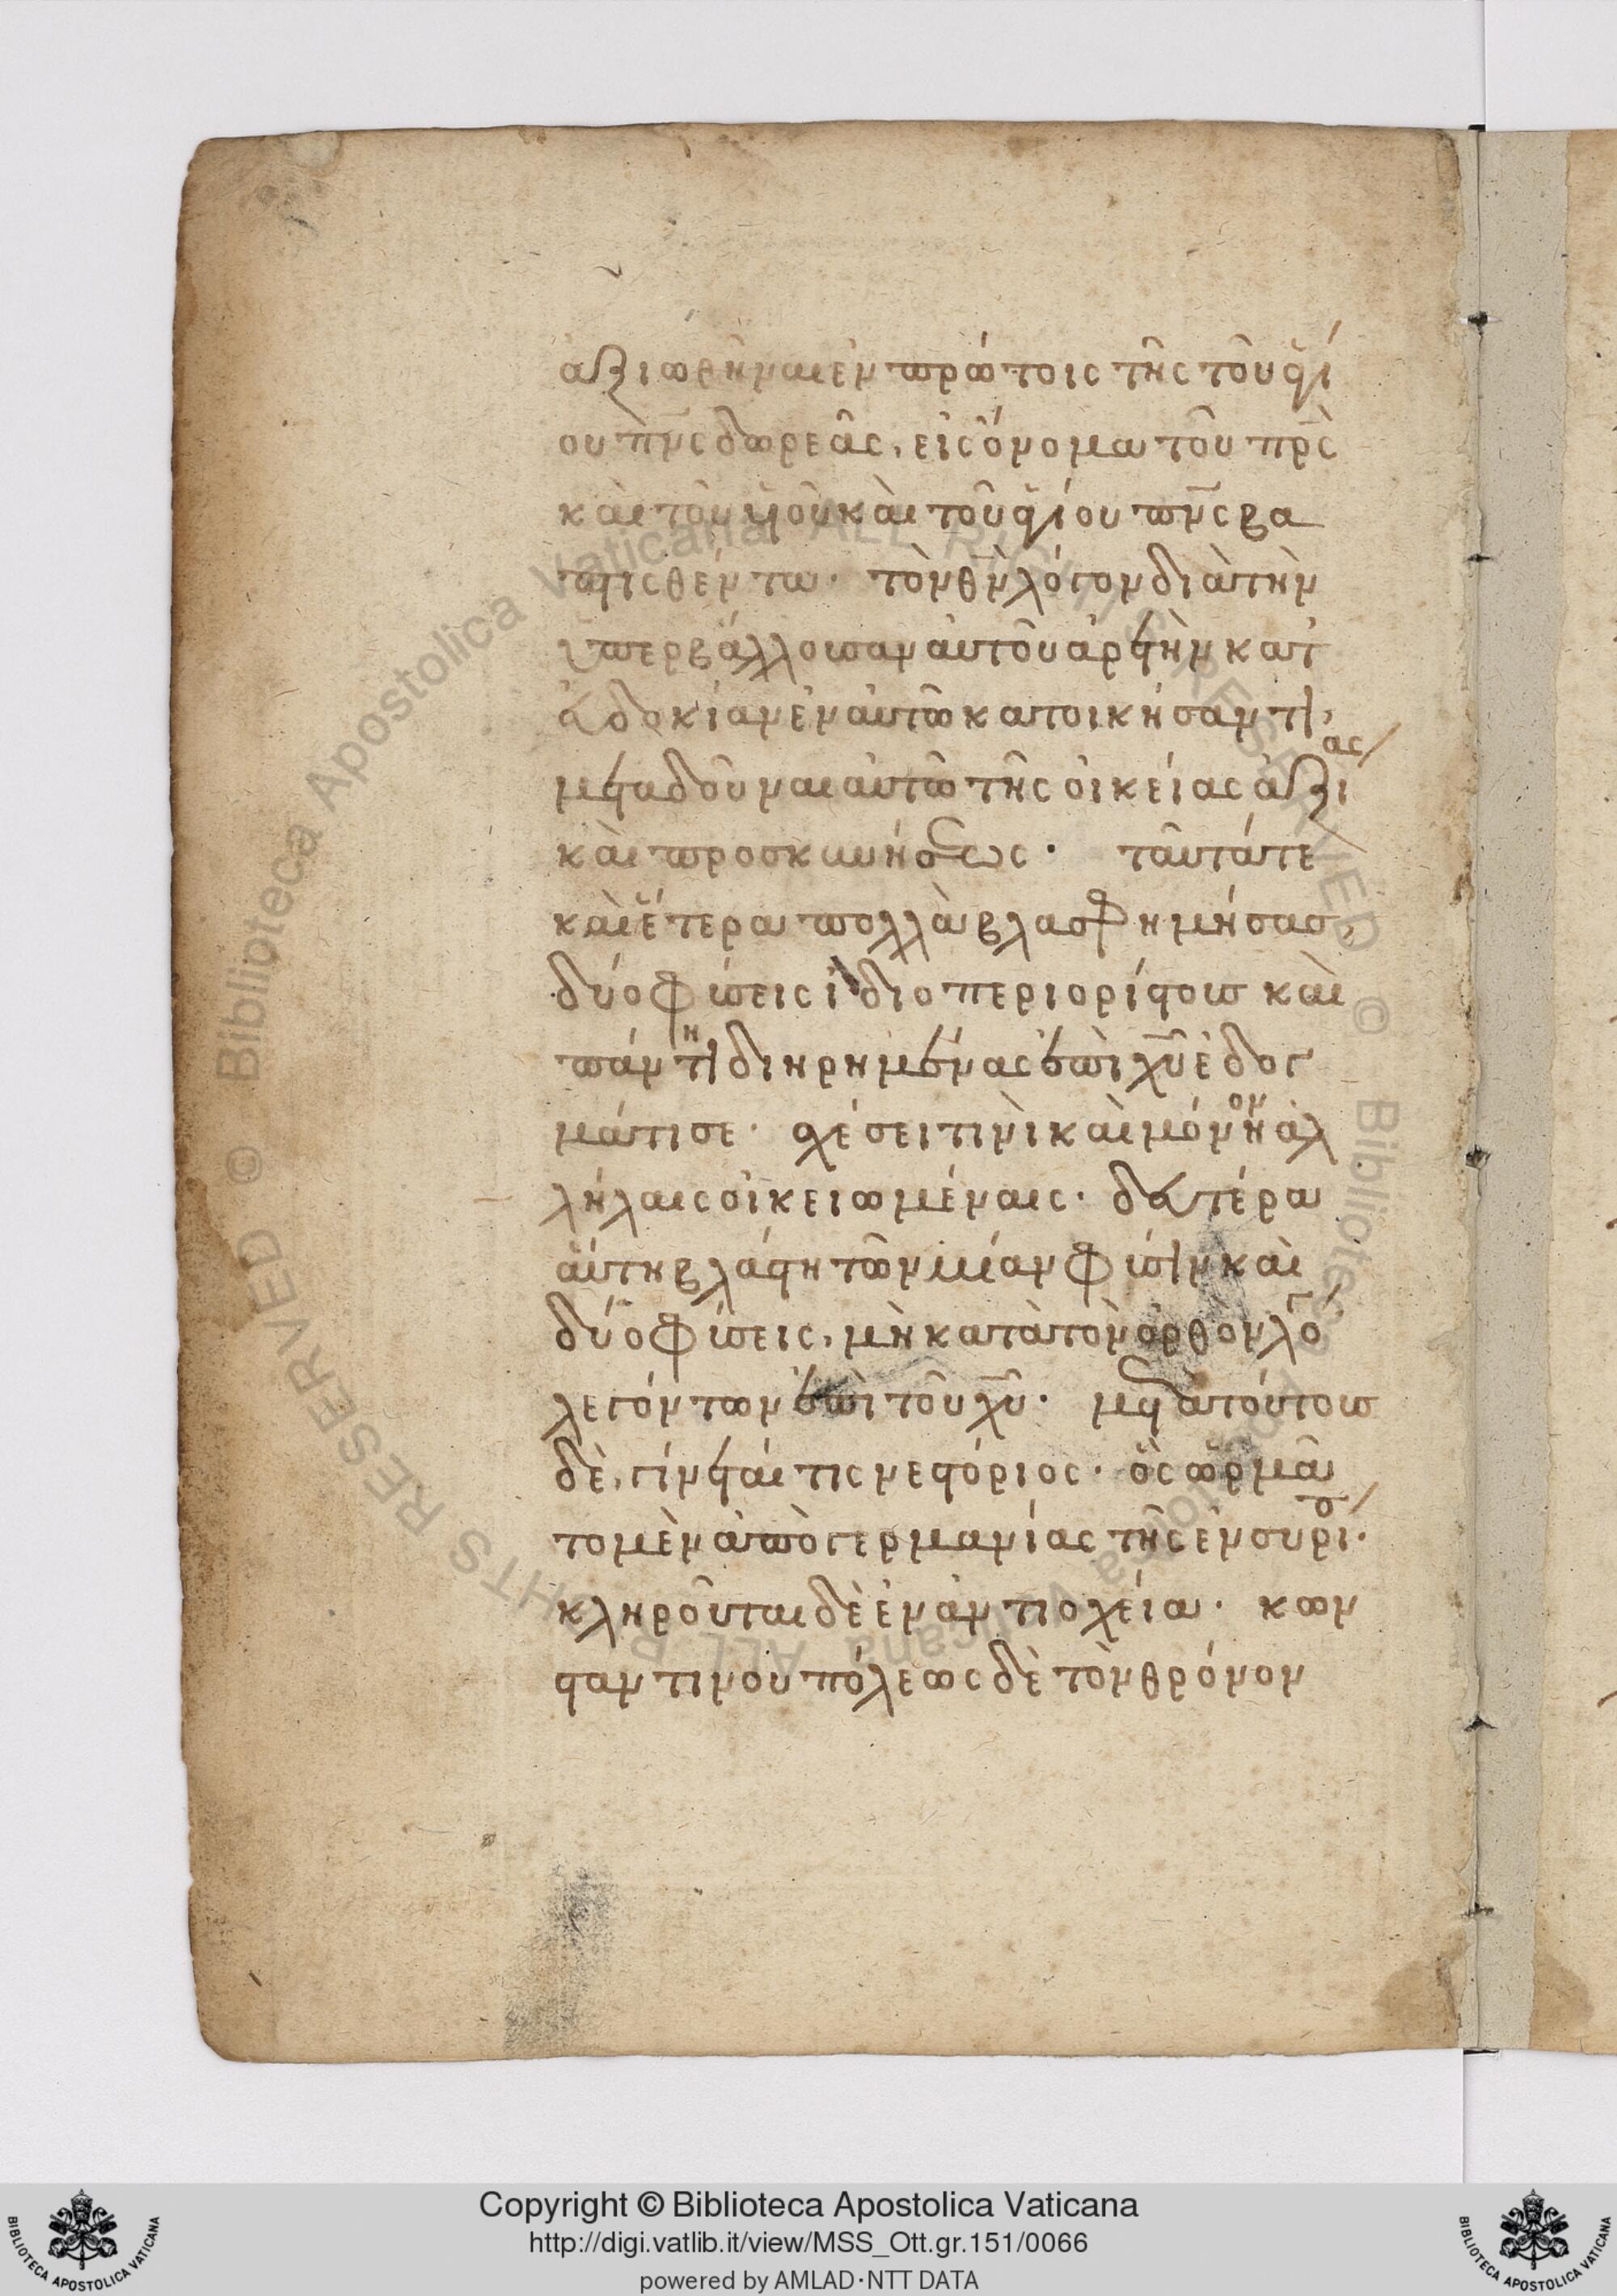 ἀξιωθῆναι ἐν πρώτοις τῆς τοῦ ἁγί
ου πν̅ς δωρεᾶς, εἰς ὄνομα τοῦ πρ̅ς
καὶ τοῦ υἱοῦ καὶ τοῦ ἁγίου πν̅ς βα
πτισθέντα· τὸν θν̅ λόγον διὰ τὴν
ὑπερβάλλουσαν αὐτοῦ ἀρετὴν κατ
εὐδοκίαν ἐν αὐτῶ κατοικήσαντα,
μεταδοῦναι αὐτῶ τῆς οἰκείας ἀξίας
καὶ προσκυνήσεως· ταῦτά τε
καὶ ἕτερα πολλὰ βλασφημήσας,
δύο φύσεις ἰδιοπεριορίστους καὶ
πάντη διηρημένας ἐπὶ χυ̅ ἐδογ
μάτισε· σχέσει τινὶ καὶ μόνον ἢ ἀλ
λήλαις οἰκειωμέναις· δευτέρα
αὕτη βλάβη τῶν μίαν φύσιν καὶ
δύο φύσεις, μὴ κατὰ τὸν ὀρθὸν λό
λεγόντων ἐπὶ τοῦ χυ̅· μετὰ τούτους
δὲ, γίνεταί τις νεστόριος· ὃς ὥρμα
το μὲν ἀπὸ γερμανίας τῆς ἐν συρί·
κληροῦται δὲ ἐν ἀντιοχεία· κων
σταντινουπόλεως δὲ τὸν θρόνον
Copyright © Biblioteca Apostolica Vaticana
http://digi.vatlib.it/view/MSS_Ott.gr.151/0066
powered by AMLAD·NTT DATA